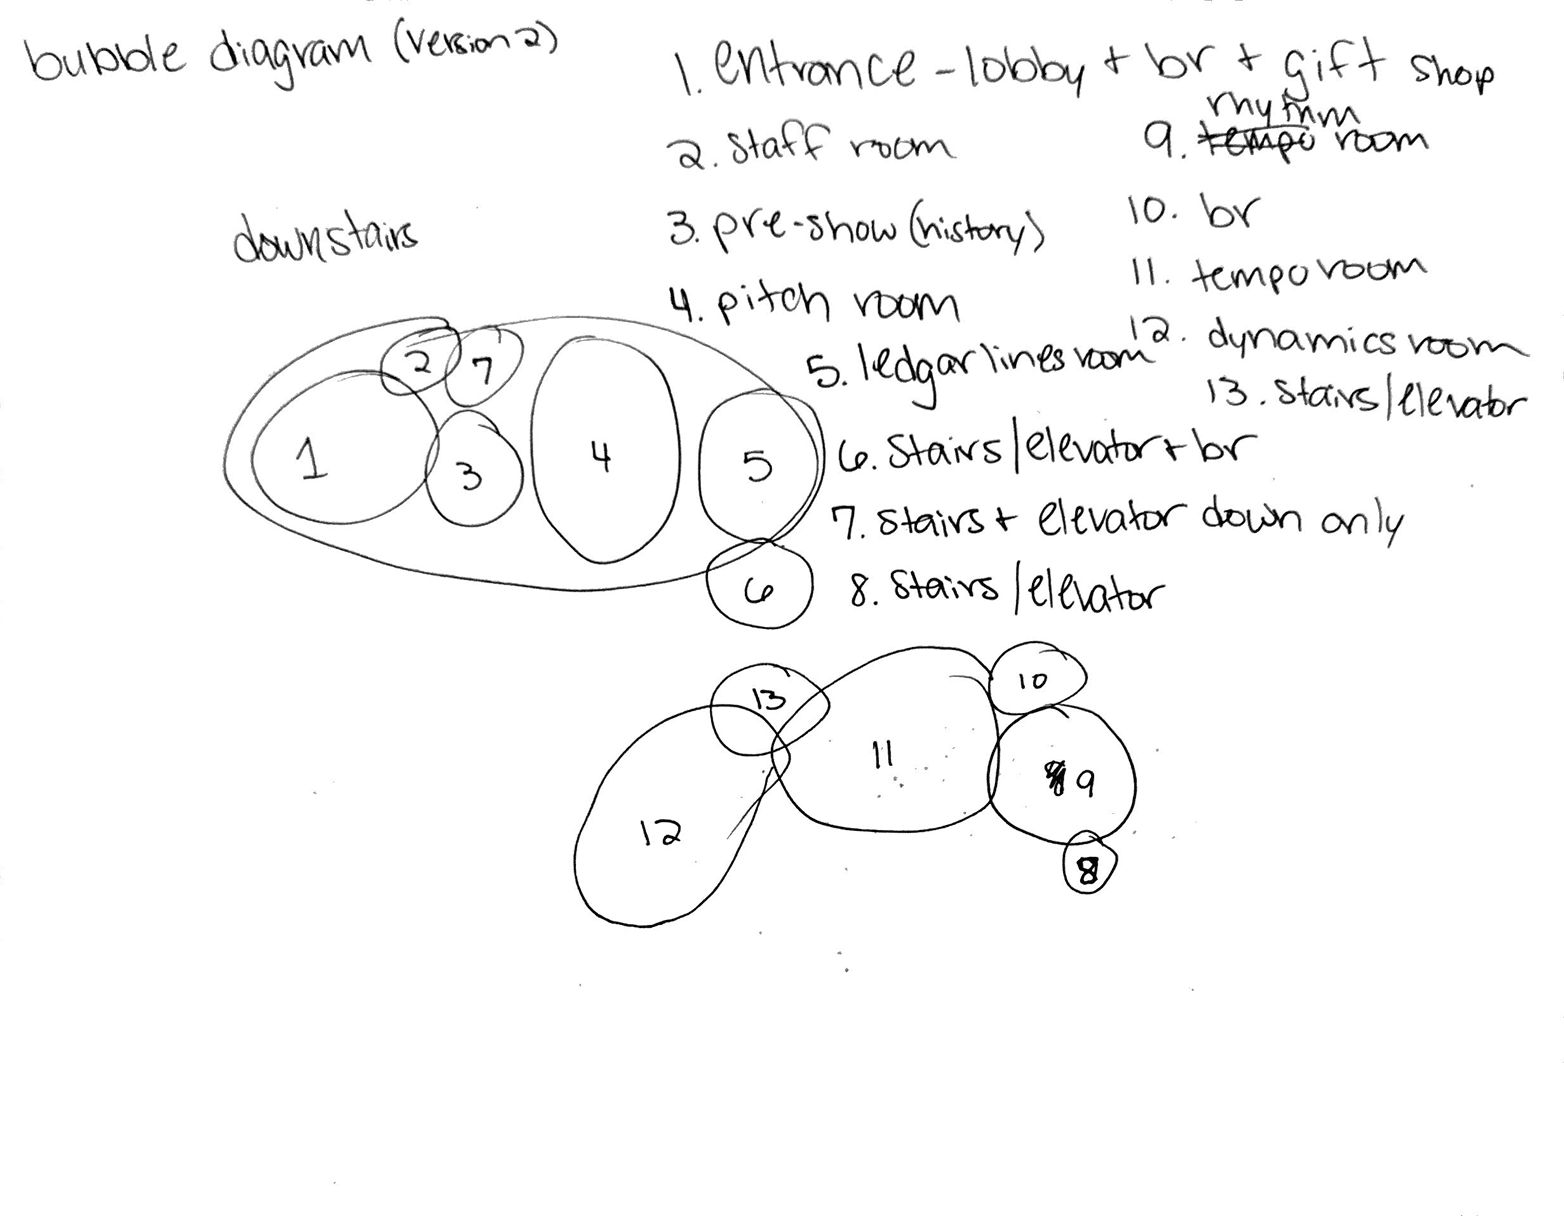 bubble diagram (version 2)
1. entrance - lobby + br + gift shop
2. staff room
3. pre-show (history)
4. pitch room
5. ledgar lines room
6. stairs/elevator + br
7. stairs + elevator down only
8. stairs/elevator
rhythm
9. tempo room
10. br
11. tempo room
12. dynamics room
13. stairs/elevator
downstairs
1
2
7
3
4
5
6
13
11
10
9
12
8